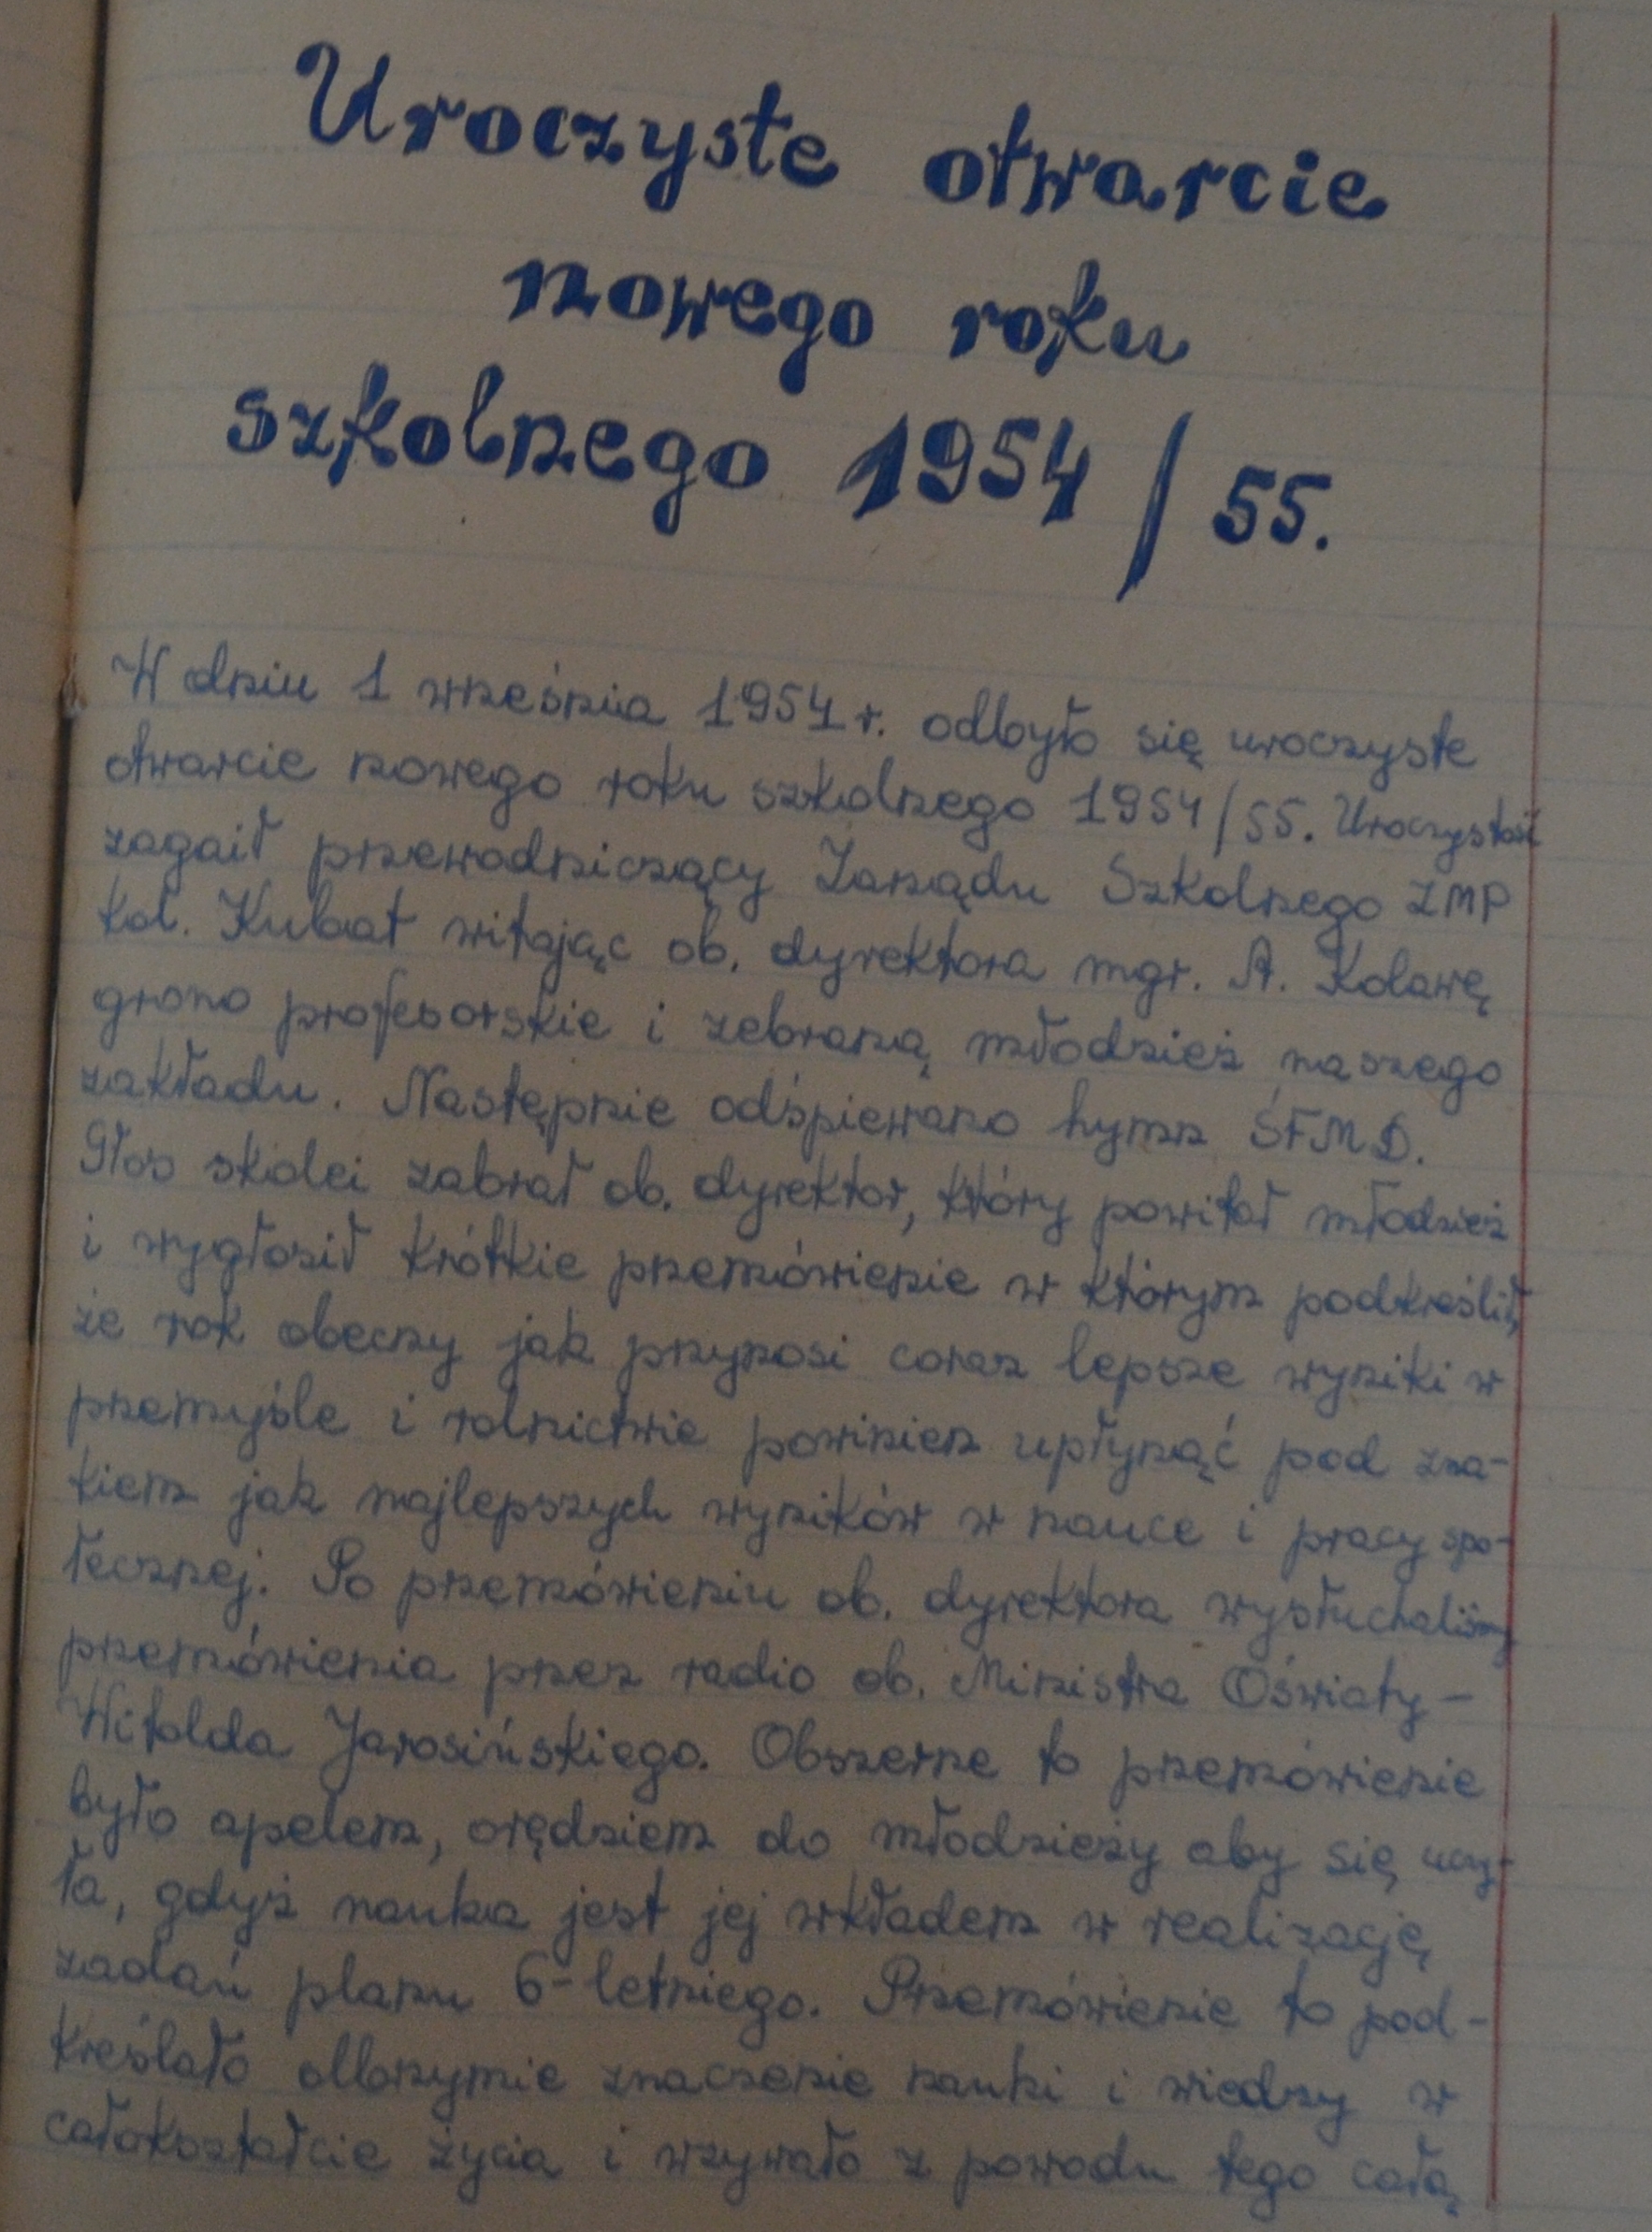 Uroczyste otwarcie
nowego roku
szkolnego 1954/55.
W dniu 1 września 1954 r. odbyło się uroczyste
otwarcie nowego roku szkolnego 1954/55. Uroczystość
zagaił przewodniczący Zarządu Szkolnego ZMP
kol. Kubat witając ob. dyrektora mgr. A. Kolawę
grono profesorskie i zebraną młodzież naszego
zakładu. Następnie odśpiewano hymn ŚFMD.
Głos skolei zabrał ob. dyrektor, który powitał młodzież
i wygłosił krótkie przemówienie w którym podkreślił,
że rok obecny jak przynosi coraz lepsze wyniki w
przemyśle i rolnictwie powinien upłynąć pod zna-
kiem jak najlepszych wyników w nauce i pracy spo-
łecznej. Po przemówieniu ob. dyrektora wysłuchaliśmy
przemówienia przez radio ob. Ministra Oświaty -
Witolda Jarosińskiego. Obszerne to przemówienie
było apelem, orędziem do młodzieży aby się uczy-
ła, gdyż nauka jest jej wkładem w realizację
zadań planu 6-letniego. Przemówienie to pod-
kreślało olbrzymie znaczenie nauki i wiedzy w
całokształcie życia i wzywało z powodu tego całą